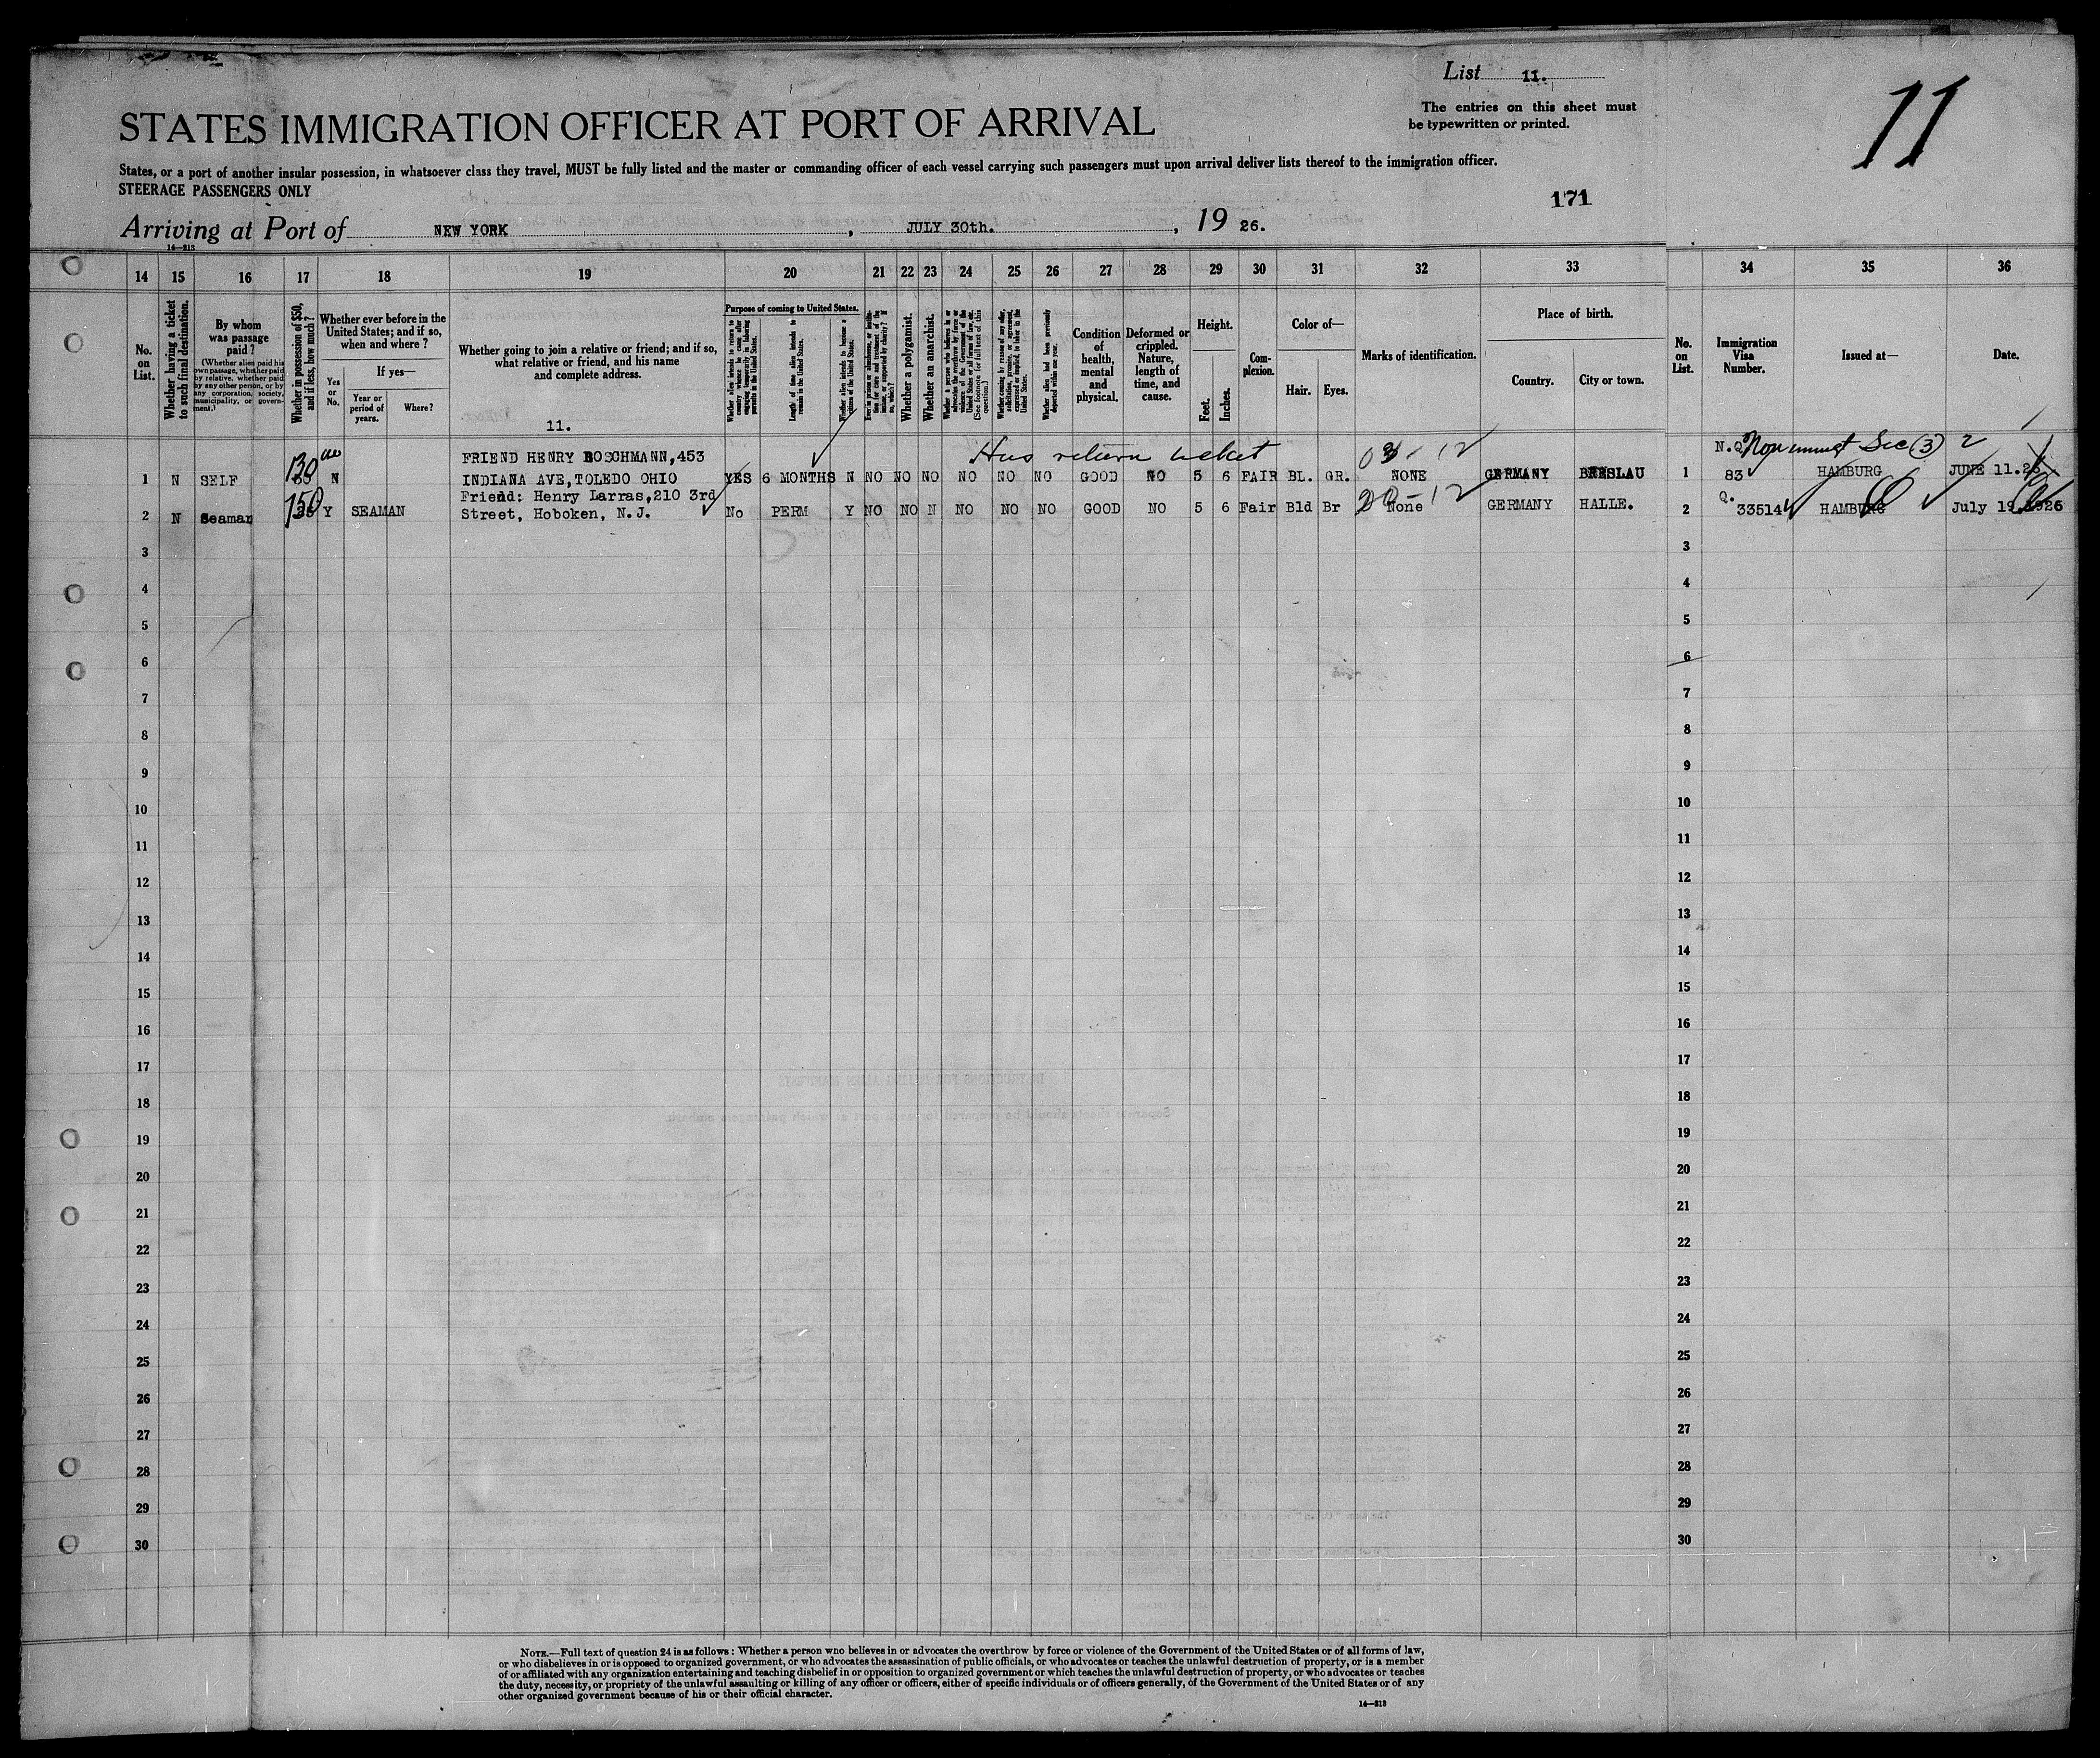 List 11.
The entries on this sheet must
be typewritten or printed.
11
STATES IMMIGRATION OFFICER AT PORT OF ARRIVAL
States, or a port of another insular possession, in whatsoever class they travel, MUST be fully listed and the master or commanding officer of each vessel carrying such passengers must upon arrival deliver lists thereof to the immigration officer.
STEERAGE PASSENGERS ONLY
171
Arriving at Port of NEW YORK, JULY 30th., 19 26.
14—213
14 15 16 17 18 19 20 21 22 23 24 25 26 27 28 29 30 31 32 33 34 35 36
No. on List.
Whether having a ticket to such final destination.
By whom was passage paid?
(Whether alien paid his own passage, whether paid by relative, whether paid by any other person, or by any corporation, society, municipality, or government.)
Whether in possession of $50, and if less, how much?
Whether ever before in the United States; and if so, when and where?
Yes or No.
If yes—
Year or period of years.
Where?
Whether going to join a relative or friend; and if so, what relative or friend, and his name and complete address.
11.
Purpose of coming to United States.
Whether alien intends to return to country whence he came after engaging temporarily in laboring pursuits in the United States.
Length of time alien intends to remain in the United States.
Whether alien intends to become a citizen of the United States.
Whether a polygamist.
Whether an anarchist.
(See footnote for full text of this question.)
Whether alien had been previously deported within one year.
Condition of health, mental and physical.
Deformed or crippled. Nature, length of time, and cause.
Height.
Feet.
Inches.
Complexion.
Color of—
Hair.
Eyes.
Marks of identification.
Place of birth.
Country.
City or town.
No. on List.
Immigration Visa Number.
Issued at—
Date.
FRIEND HENRY BOSCHMANN,453 Has return ticket 03-12 N.Q. Nonimmgt Sec (3) 2
1 N SELF 130 N INDIANA AVE,TOLEDO OHIO YES 6 MONTHS N NO NO NO NO NO NO GOOD NO 5 6 FAIR BL. GR. NONE GERMANY BRESLAU 1 83 HAMBURG JUNE 11.26
Friend: Henry Larras,210 3rd 20-12 Q.
2 N Seaman 150 Y SEAMAN Street, Hoboken, N.J. No PERM Y NO NO N NO NO NO GOOD NO 5 6 Fair Bld Br None GERMANY HALLE. 2 33514 HAMBURG July 19,1926
3 3
4 4
5 5
6 6
7 7
8 8
9 9
10 10
11 11
12 12
13 13
14 14
15 15
16 16
17 17
18 18
19 19
20 20
21 21
22 22
23 23
24 24
25 25
26 26
27 27
28 28
29 29
30 30
NOTE.—Full text of question 24 is as follows: Whether a person who believes in or advocates the overthrow by force or violence of the Government of the United States or of all forms of law,
or who disbelieves in or is opposed to organized government, or who advocates the assassination of public officials, or who advocates or teaches the unlawful destruction of property, or is a member
of or affiliated with any organization entertaining and teaching disbelief in or opposition to organized government or which teaches the unlawful destruction of property, or who advocates or teaches
the duty, necessity, or propriety of the unlawful assaulting or killing of any officer or officers, either of specific individuals or of officers generally, of the Government of the United States or of any
other organized government because of his or their official character.
14—213